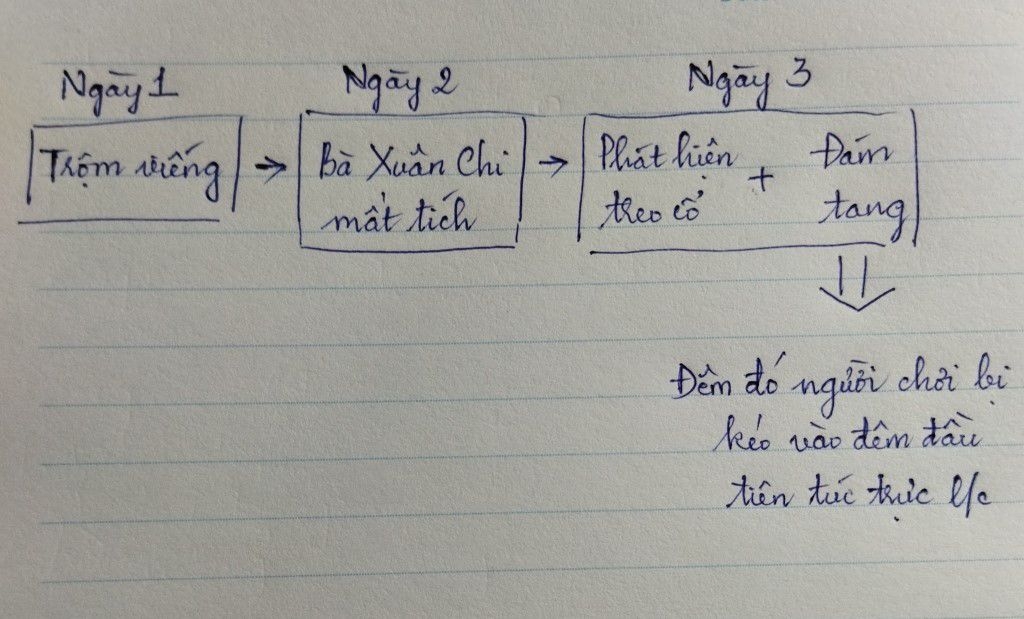 Ngày 1
Trộm viếng
Ngày 2
Bà Xuân Chi
mất tích
Ngày 3
Phát hiện
treo cổ
+
Đám
tang
Đêm đó người chơi bị
kéo vào đêm đầu
tiên túc trực l/c